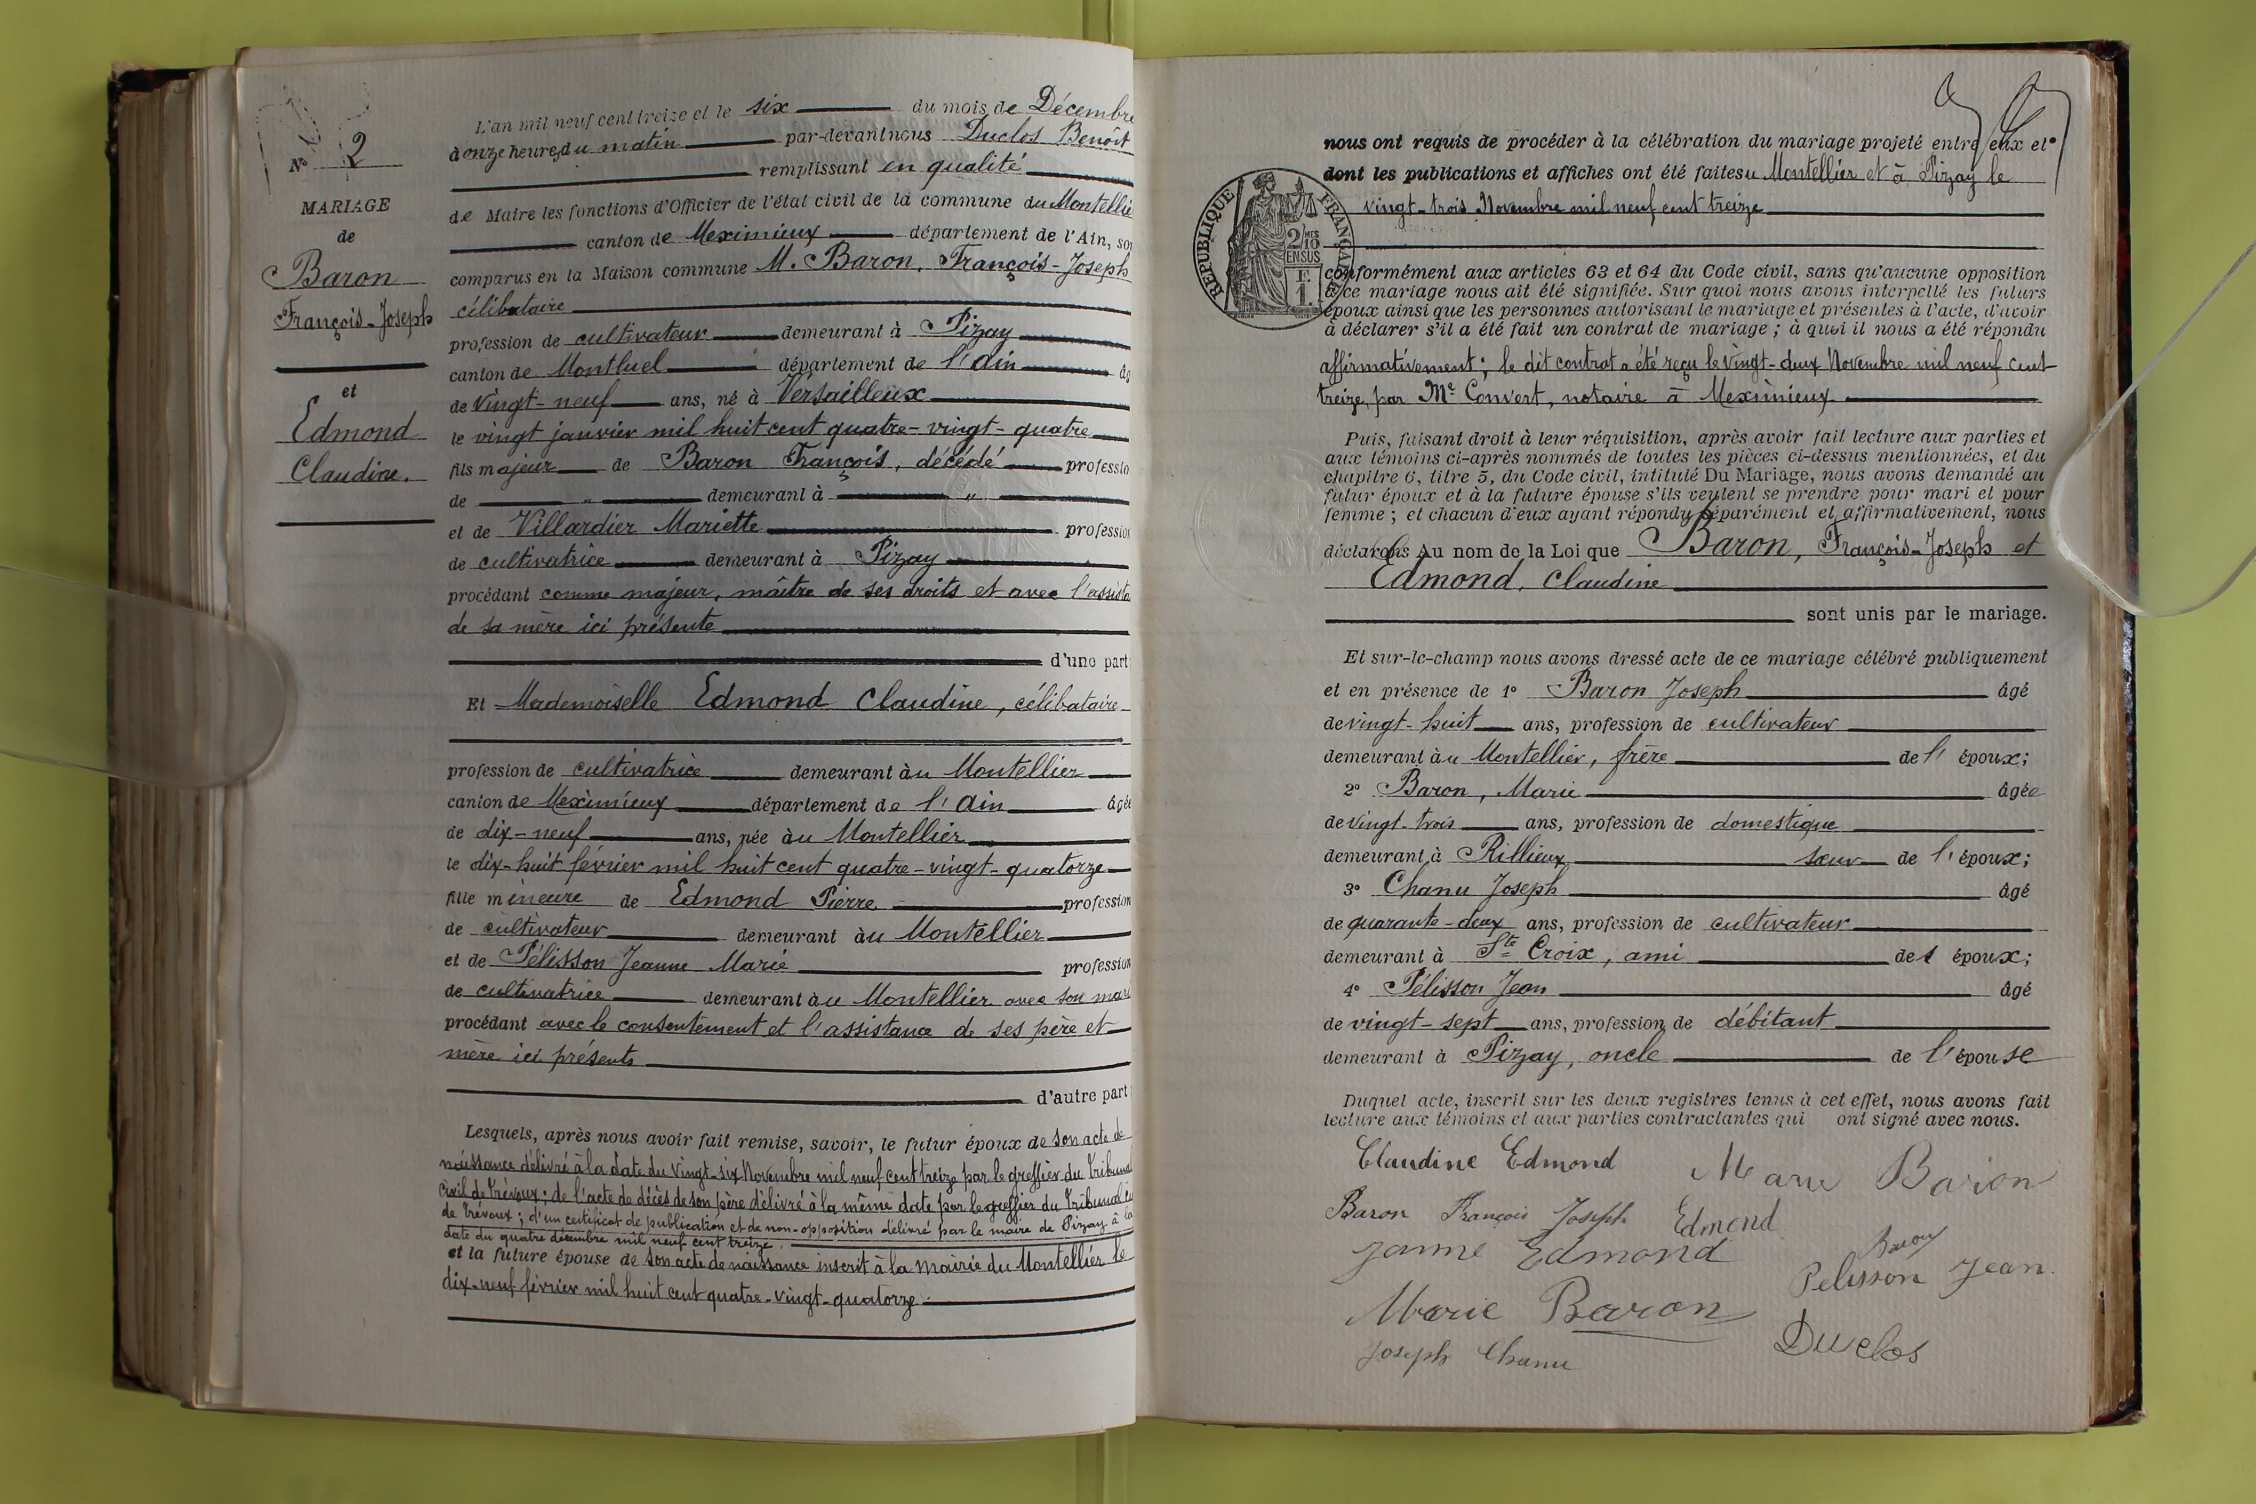 N° 2
MARIAGE
de
Baron
François-Joseph
et
Edmond
Claudine.
L'an mil neuf cent treize et le six du mois de Décembre
à onze heures du matin par-devant nous Duclos Benoît
remplissant en qualité
de Maire les fonctions d'Officier de l'état civil de la commune du Montellie
canton de Meximieux département de l'Ain, son
comparus en la Maison commune M. Baron, François-Joseph
célibataire
profession de cultivateur demeurant à Pizay
canton de Montluel département de l'Ain âg
de vingt-neuf ans, né à Versailleux
le vingt janvier mil huit cent quatre-vingt-quatre
fils majeur de Baron François, décédé professio
de " demeurant à "
et de Villardier Mariette profession
de cultivatrice demeurant à Pizay
procédant comme majeur, maître de ses droits et avec l'assista
de sa mère ici présente
d'une part
Et Mademoiselle Edmond Claudine, célibataire
profession de cultivatrice demeurant àu Montellier
canton de Meximieux département de l'Ain âgée
de dix-neuf ans, née àu Montellier
le dix-huit février mil huit cent quatre-vingt-quatorze
fille mineure de Edmond Pierre profession
de cultivateur demeurant àu Montellier
et de Pélisson Jeanne Marie profession
de cultivatrice demeurant àu Montellier avec son mari
procédant avec le consentement et l'assistance de ses père et
mère ici présents
d'autre part
Lesquels, après nous avoir fait remise, savoir, le futur époux de son acte de
naissance délivré à la date du vingt-six Novembre mil neuf cent treize par le greffier du Tribunal
civil de Trévoux; de l'acte de décès de son père délivré à la même date par le greffier du Tribunal ci
de Trévoux; d'un certificat de publication et de non-opposition délivré par le maire de Pizay à la
date du quatre décembre mil neuf cent treize.
et la future épouse de son acte de naissance inscrit à la mairie du Montellier le
dix-neuf février mil huit cent quatre-vingt-quatorze.
nous ont requis de procéder à la célébration du mariage projeté entre eux et
dont les publications et affiches ont été faites au Montellier et à Pizay le
vingt-trois Novembre mil neuf cent treize
RÉPUBLIQUE FRANÇAISE
2/10 MES
EN SUS
F.
1.
conformément aux articles 63 et 64 du Code civil, sans qu'aucune opposition
à ce mariage nous ait été signifiée. Sur quoi nous avons interpellé les futurs
époux ainsi que les personnes autorisant le mariage et présentes à l'acte, d'avoir
à déclarer s'il a été fait un contrat de mariage; à quoi il nous a été répondu
affirmativement; le dit contrat a été reçu le vingt-deux Novembre mil neuf cent
treize, par Me Convert, notaire à Meximieux
Puis, faisant droit à leur réquisition, après avoir fait lecture aux parties et
aux témoins ci-après nommés de toutes les pièces ci-dessus mentionnées, et du
chapitre 6, titre 5, du Code civil, intitulé Du Mariage, nous avons demandé au
futur époux et à la future épouse s'ils veulent se prendre pour mari et pour
femme; et chacun d'eux ayant répondu séparément et affirmativement, nous
déclarons Au nom de la Loi que Baron, François-Joseph et
Edmond, Claudine
sont unis par le mariage.
Et sur-le-champ nous avons dressé acte de ce mariage célébré publiquement
et en présence de 1° Baron Joseph âgé
de vingt-huit ans, profession de cultivateur
demeurant àu Montellier, frère de l' époux;
2° Baron, Marie âgée
de vingt-trois ans, profession de domestique
demeurant à Rillieux soeur de l'époux;
3° Chanu Joseph âgé
de quarante-deux ans, profession de cultivateur
demeurant à Ste Croix, ami des époux;
4° Pélisson Jean âgé
de vingt-sept ans, profession de débitant
demeurant à Pizay, oncle de l'épouse
Duquel acte, inscrit sur les deux registres tenus à cet effet, nous avons fait
lecture aux témoins et aux parties contractantes qui ont signé avec nous.
Claudine Edmond Marie Baron
Baron François Joseph Edmond
Jeanne Edmond Baron
Pelisson Jean
Marie Baron
Duclos
Joseph Chanu